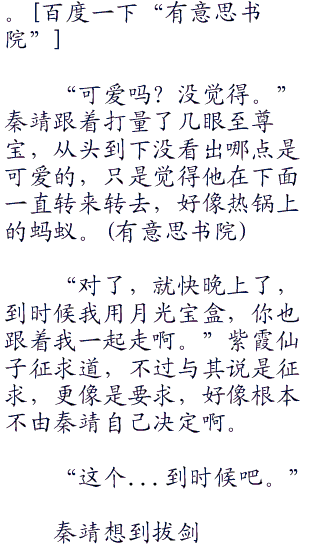 。[百度一下“有意思书
院”]
“可爱吗？没觉得。”
秦靖跟着打量了几眼至尊
宝，从头到下没看出哪点是
可爱的，只是觉得他在下面
一直转来转去，好像热锅上
的蚂蚁。(有意思书院)
“对了，就快晚上了，
到时候我用月光宝盒，你也
跟着我一起走啊。”紫霞仙
子征求道，不过与其说是征
求，更像是要求，好像根本
不由秦靖自己决定啊。
“这个...到时候吧。”
秦靖想到拔剑